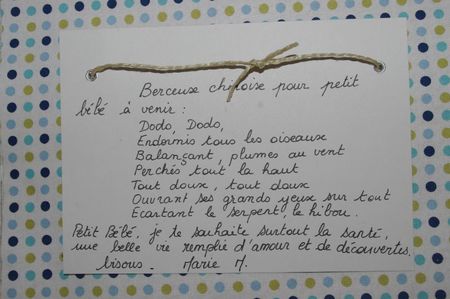 Berceuse chinoise pour petit
bébé à venir :
Dodo, Dodo,
Endormis tous les oiseaux
Balançant, plumes au vent
Perchés tout la haut
Tout doux, tout doux
Ouvrant ses grands yeux sur tout
Ecartant le serpent, le hibou.
Petit Bébé, je te souhaite surtout la santé,
une belle vie remplie d'amour et de découvertes.
bisous. Marie M.